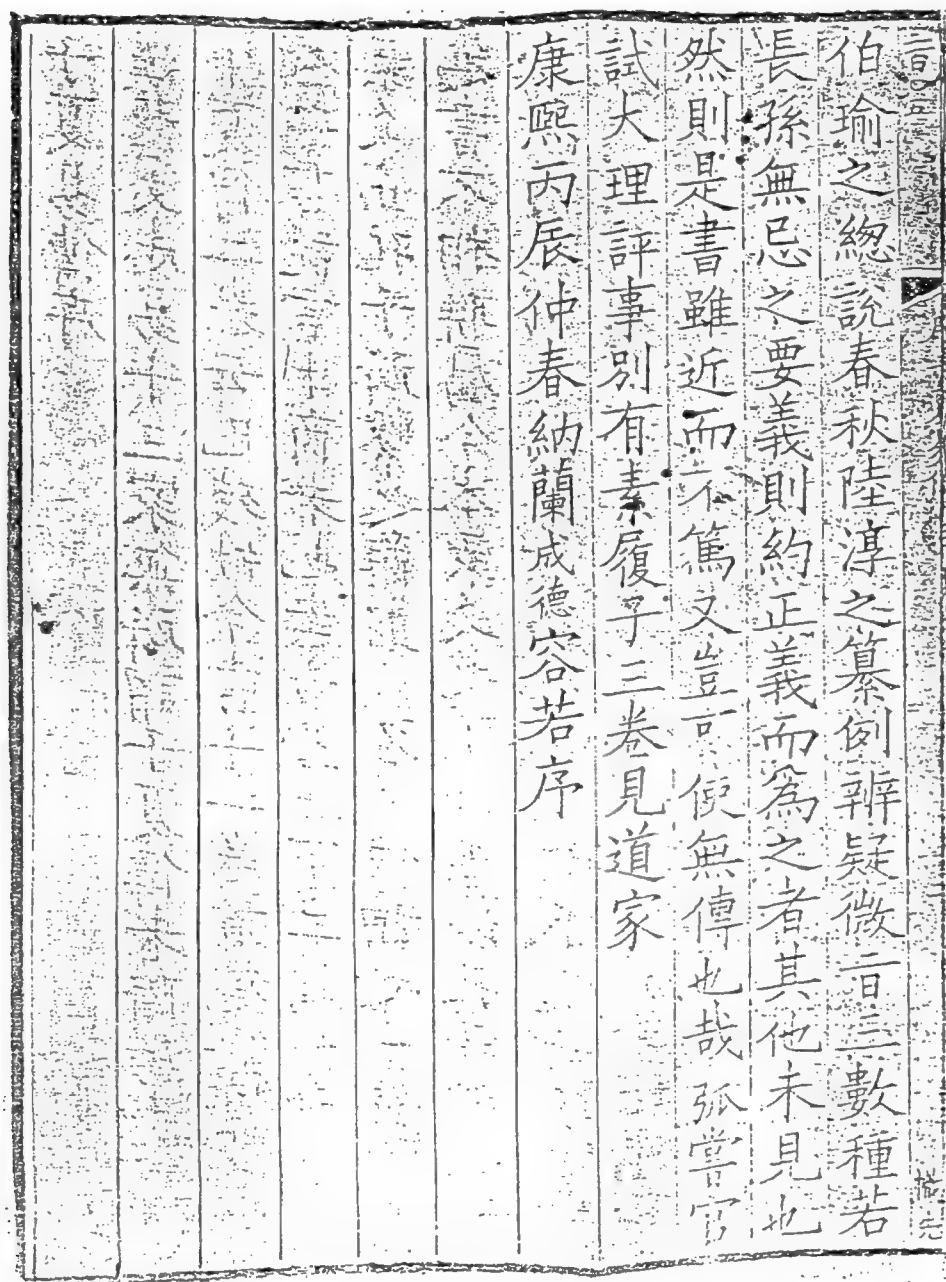 伯瑜之緫說春秋陸淳之纂例辨疑微㫖三數種若
長孫無忌之要義則約正義而為之者其他未見也
然則是書雖近而不篤又豈可使無傳也哉弧嘗官
試大理評事別有素履子三卷見道家
康熙丙辰仲春納蘭成德容若序